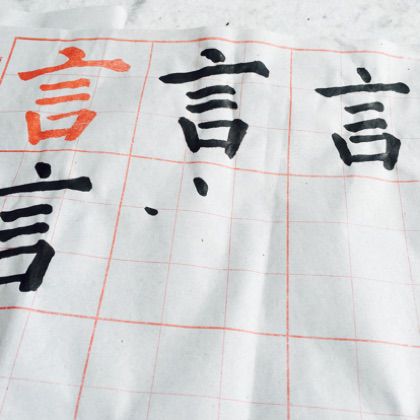 言言言
言